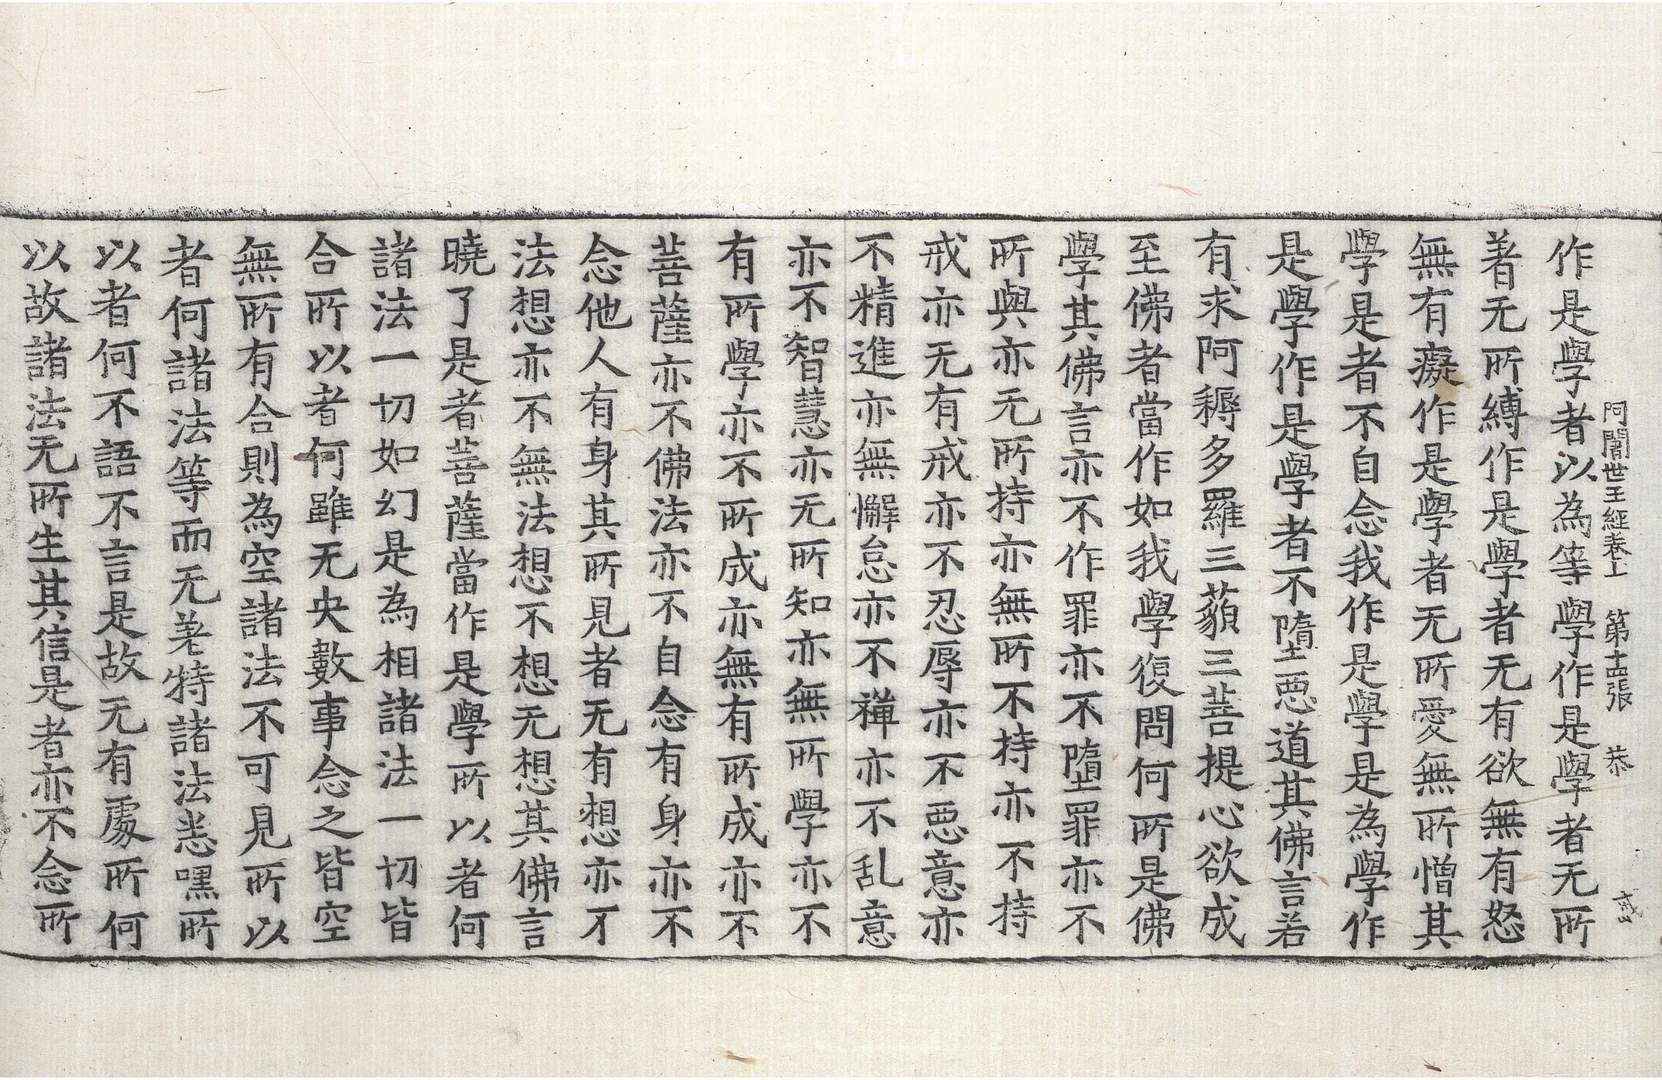 阿闍世王經卷上 第十四張 恭
作是學者以為等學作是學者无所
著无所縛作是學者无有欲無有怒
無有癡作是學者无所愛無所憎其
學是者不自念我作是學是為學作
是學作是學者不墮惡道其佛言若
有求阿耨多羅三藐三菩提心欲成
至佛者當作如我學復問何所是佛
學其佛言亦不作罪亦不墮罪亦不
所與亦无所持亦無所不持亦不持
戒亦无有戒亦不忍辱亦不惡意亦
不精進亦無懈怠亦不禪亦不乱意
亦不智慧亦无所知亦無所學亦不
有所學亦不所成亦無有所成亦不
菩薩亦不佛法亦不自念有身亦不
念他人有身其所見者无有想亦不
法想亦不無法想不想无想其佛言
曉了是者菩薩當作是學所以者何
諸法一切如幻是為相諸法一切皆
合所以者何雖无央數事念之皆空
無所有合則為空諸法不可見所以
者何諸法等而无若特諸法悉嘿所
以者何不語不言是故无有處所何
以故諸法无所生其信是者亦不念所